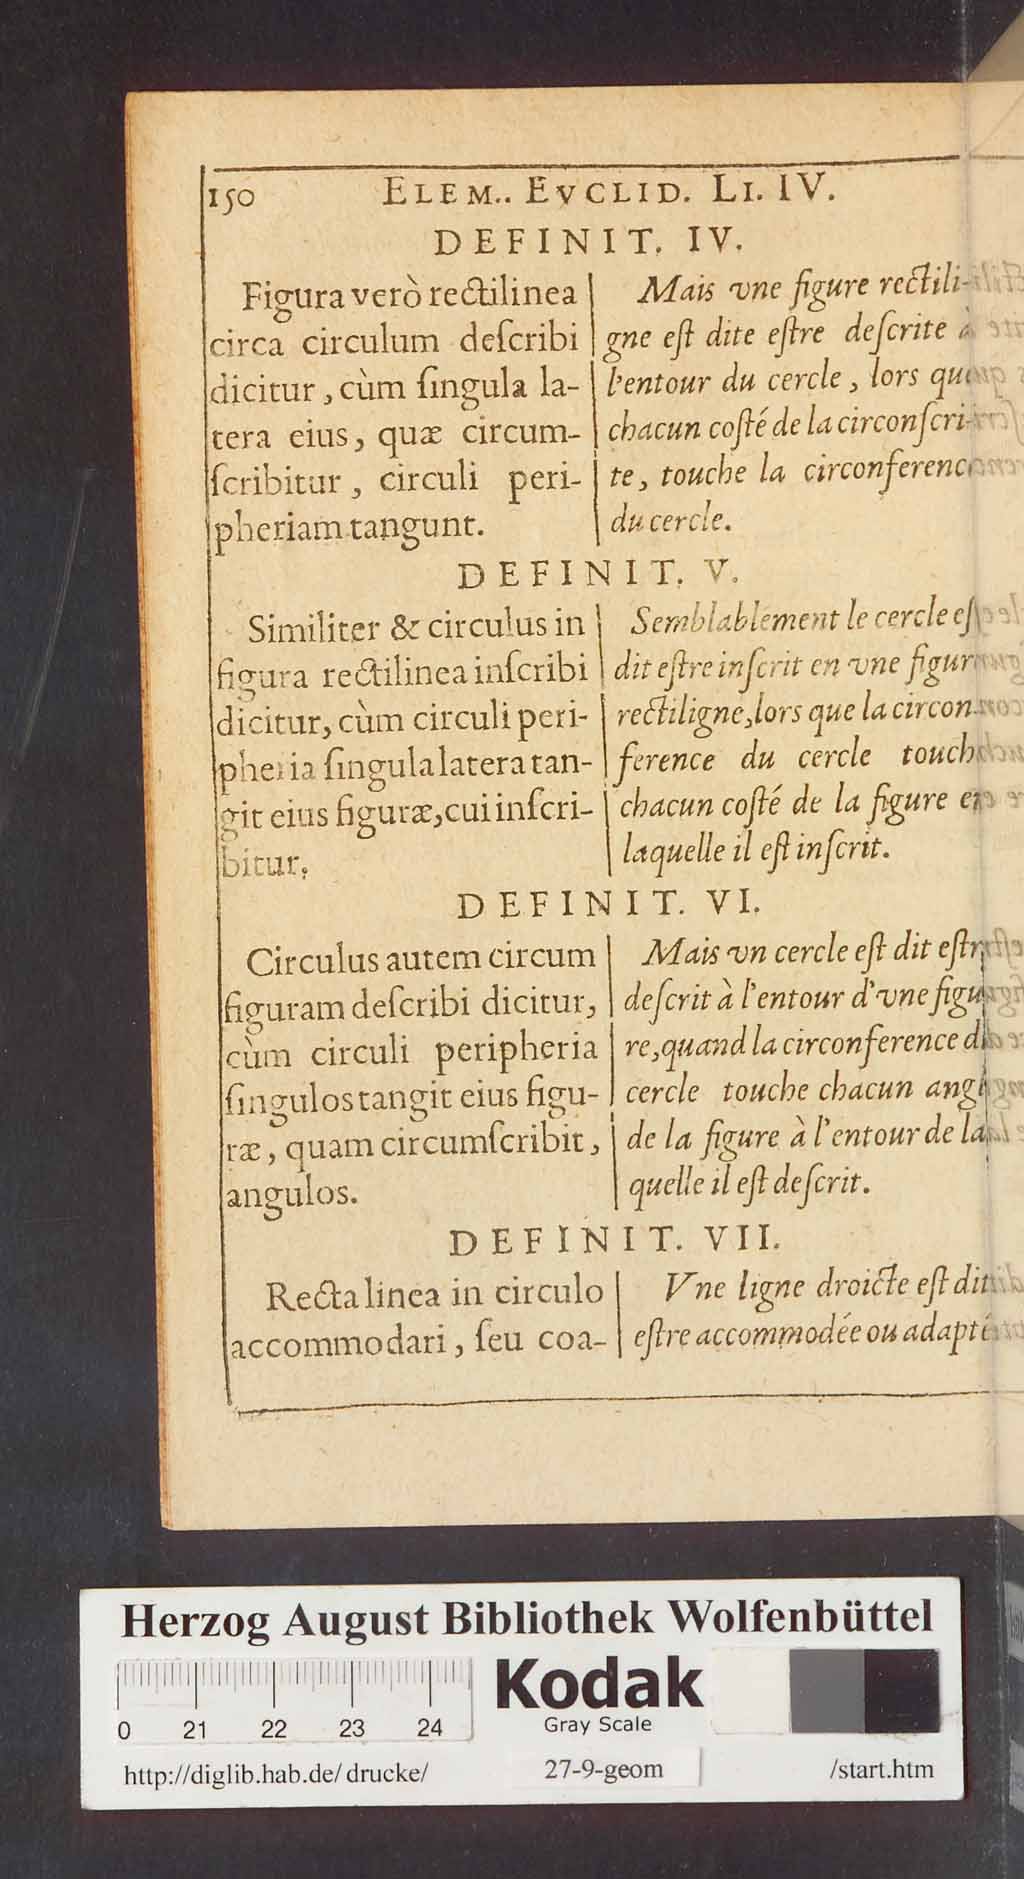 150 ELEM.. EVCLID. LI. IV.
DEFINIT. IV.
Figura verò rectilinea
circa circulum deſcribi
dicitur, cùm ſingula la-
tera eius, quæ circum-
ſcribitur, circuli peri-
pheriam tangunt.
Mais vne figure rectili-
gne eſt dite eſtre deſcrite à
l'entour du cercle, lors que
chacun coſté de la circonſcri-
te, touche la circonference
du cercle.
DEFINIT. V.
Similiter & circulus in
figura rectilinea inſcribi
dicitur, cùm circuli peri-
pheria ſingula latera tan-
git eius figuræ, cui inſcri-
bitur.
Semblablement le cercle eſ
dit eſtre inſcrit en vne figur
rectiligne, lors que la circon-
ference du cercle touch
chacun coſté de la figure en
laquelle il eſt inſcrit.
DEFINIT. VI.
Circulus autem circum
figuram deſcribi dicitur,
cùm circuli peripheria
ſingulos tangit eius figu-
ræ, quam circumſcribit,
angulos.
Mais vn cercle eſt dit eſtr
deſcrit à l'entour d'vne figu
re, quand la circonference d
cercle touche chacun angl
de la figure à l'entour de la
quelle il eſt deſcrit.
DEFINIT. VII.
Recta linea in circulo
accommodari, ſeu coa-
Vne ligne droicte eſt dit
eſtre accommodée ou adapté
Herzog August Bibliothek Wolfenbüttel
0 21 22 23 24
Kodak
Gray Scale
http://diglib.hab.de/drucke/ 27-9-geom /start.htm